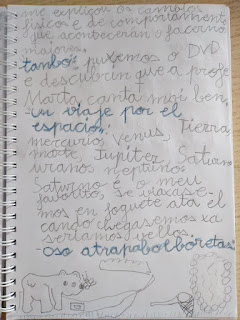 me explicou os cambios
físicos e de comportamento
que aconteceran o facerno
maiores.
tambo: puxemos o DVD
e descubrin que a profe
Marta canta moi ben.
un viaje por el
espacio:
mercurio, venus, Tierra,
marte, Jupiter, Saturno
uranos neptuno.
Saturno é o meu
favorito, se viaxase-
mos en foguete ata él
cando chegasemos xa
seriamos vellos.
-oso atrapabolboretas: